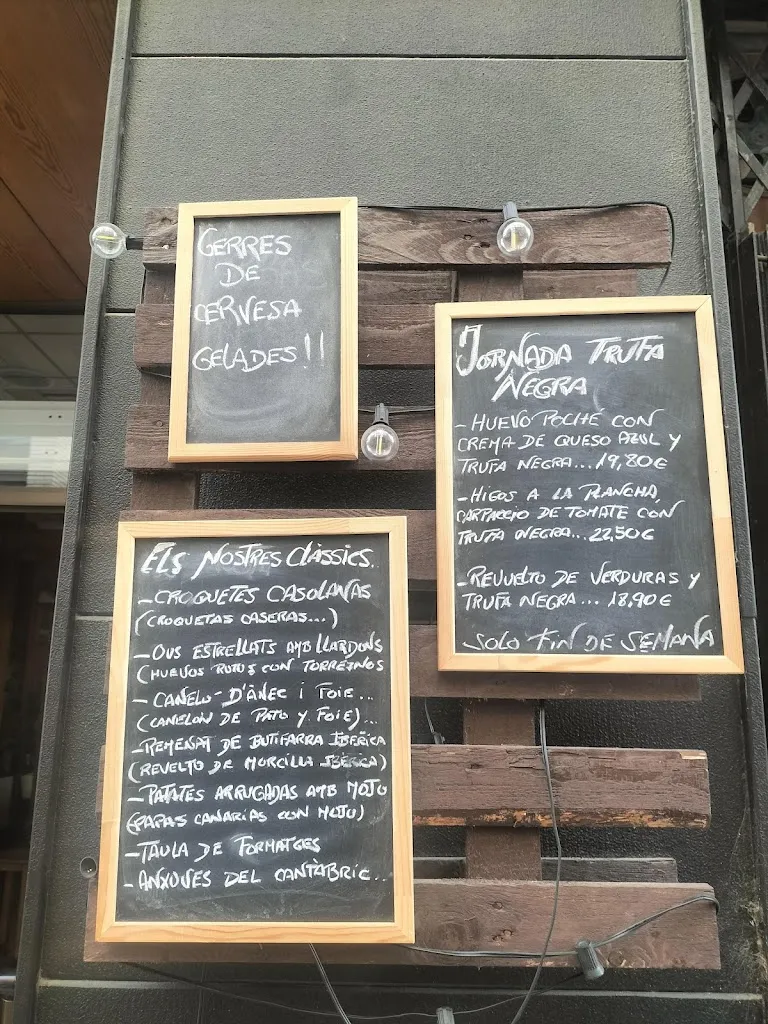 GERRES
DE
CERVESA
GELADES!!
JORNADA TRUFA
NEGRA
- HUEVO POCHÉ CON
CREMA DE QUESO AZUL Y
TRUFA NEGRA... 19,80€
- HIGOS A LA PLANCHA,
CARPACCIO DE TOMATE CON
TRUFA NEGRA... 22,50€
- REVUELTO DE VERDURAS Y
TRUFA NEGRA... 18,90€
SOLO FIN DE SEMANA
ELS NOSTRES CLÀSSICS.
- CROQUETES CASOLANAS
(CROQUETAS CASERAS...)
- OUS ESTRELLATS AMB LLARDONS
(HUEVOS ROTOS CON TORREZNOS
- CANELO- D'ÀNEC I FOIE...
(CANELON DE PATO Y FOIE)...
- REMENAT DE BUTIFARRA IBERICA
(REVELTO DE MORCILLA IBÉRICA)
- PATATES ARRUGADAS AMB MOJO
(PAPAS CANARIAS CON MOJO)
- TAULA DE FORMATGES
- ANXOVES DEL CANTÀBRIC..